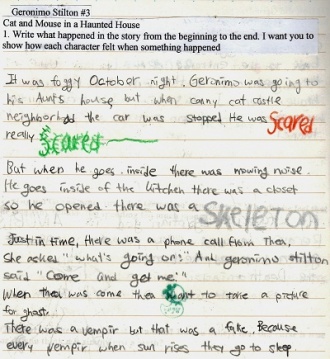 Geronimo Stilton #3
Cat and Mouse in a Haunted House
1. Write what happened in the story from the beginning to the end. I want you to
show how each character felt when something happened
It was foggy October night. Geronimo was going to
his Aunt's house but when canny cat castle
neighborhood the car was stopped He was Scared
really Scared
But when he goes inside there was mowing noise.
He goes inside of the kitchen there was a closet
so he opened there was a SKELETON
Just in time, there was a phone call from Thea,
She asked "what's going on?" And geronimo stilton
said "Come and get me!"
When thea was come thea to take a picture
for ghost.
There was a vempir but that was a fake. Because
every vempir when sun rises they go to sleep